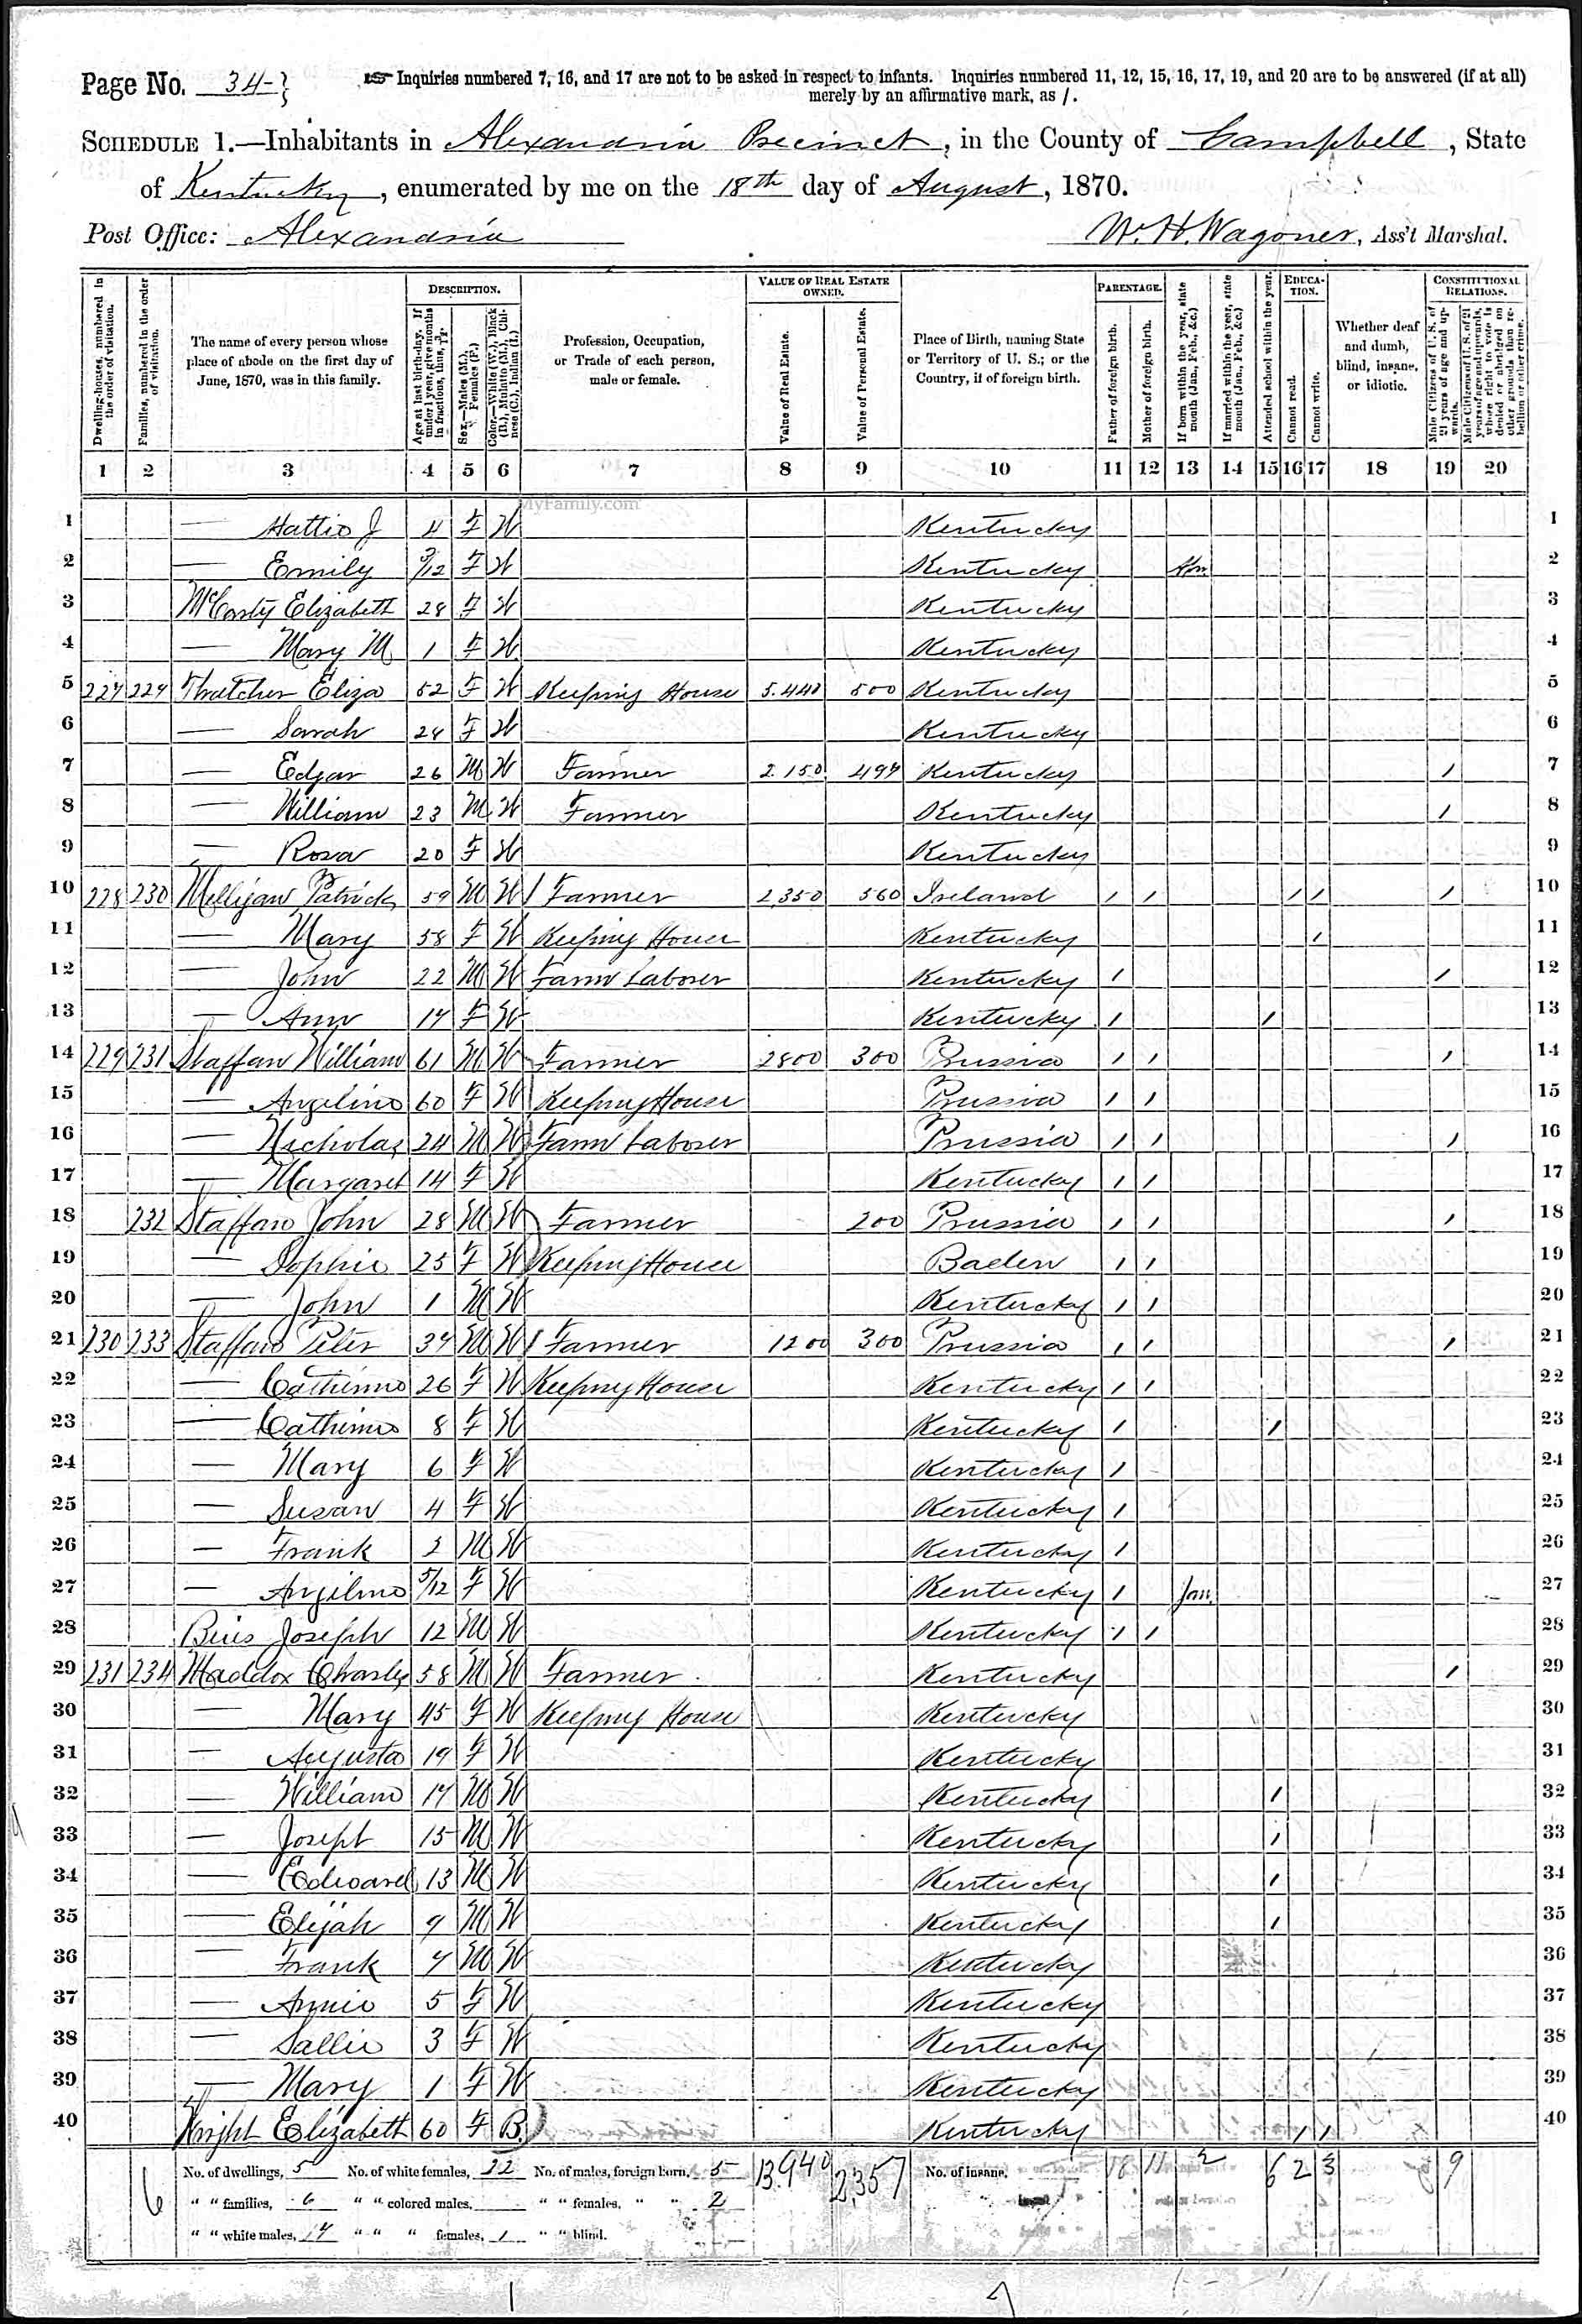 Page No. 34
Inquiries numbered 7, 16, and 17 are not to be asked in respect to infants. Inquiries numbered 11, 12, 15, 16, 17, 19, and 20 are to be answered (if at all)
merely by an affirmative mark, as /.
SCHEDULE 1.—Inhabitants in Alexandria Precinct, in the County of Campbell, State
of Kentucky, enumerated by me on the 18th day of August, 1870.
Post Office: Alexandria W. H. Wagoner, Ass't Marshal.
DESCRIPTION. VALUE OF REAL ESTATE OWNED. PARENTAGE. EDUCATION. CONSTITUTIONAL RELATIONS.
Dwelling-houses, numbered in the order of visitation.
Families, numbered in the order of visitation.
The name of every person whose place of abode on the first day of June, 1870, was in this family.
Age at last birth-day. If under 1 year, give months in fractions, thus, 3/12.
Sex.—Males (M.), Females (F.)
Color.—White (W.), Black (B.), Mulatto (M.), Chinese (C.), Indian (I.)
Profession, Occupation, or Trade of each person, male or female.
Value of Real Estate.
Value of Personal Estate.
Place of Birth, naming State or Territory of U. S.; or the Country, if of foreign birth.
Father of foreign birth.
Mother of foreign birth.
If born within the year, state month (Jan., Feb., &c.)
If married within the year, state month (Jan., Feb., &c.)
Attended school within the year.
Cannot read.
Cannot write.
Whether deaf and dumb, blind, insane, or idiotic.
Male Citizens of U. S. of 21 years of age and upwards.
Male Citizens of U. S. of 21 years of age and upwards, whose right to vote is denied or abridged on other grounds than rebellion or other crime.
1 2 3 4 5 6 7 8 9 10 11 12 13 14 15 16 17 18 19 20
MyFamily.com
1 — Hattie J 4 F W Kentucky 1
2 — Emily /12 F W Kentucky 2
3 McCarty Elizabeth 28 F W Kentucky 3
4 — Mary M 1 F W Kentucky 4
5 227 229 Thatcher Eliza 52 F W Keeping House 5.440 500 Kentucky 5
6 — Sarah 28 F W Kentucky 6
7 — Edgar 26 M W Farmer 2.150 497 Kentucky / 7
8 — William 23 M W Farmer Kentucky / 8
9 — Rosa 20 F W Kentucky 9
10 228 230 Milligan Patrick 59 M W Farmer 2,350 560 Ireland / / / / / 10
11 — Mary 58 F W Keeping House Kentucky / 11
12 — John 22 M W Farm Laborer Kentucky / / 12
13 — Ann 17 F W Kentucky / / 13
14 229 231 Staffan William 61 M W Farmer 2800 300 Prussia / / / 14
15 — Angeline 60 F W Keeping House Prussia / / 15
16 — Nicholas 24 M W Farm Laborer Prussia / / / 16
17 — Margaret 14 F W Kentucky / / 17
18 232 Staffan John 28 M W Farmer 200 Prussia / / / 18
19 — Sophie 25 F W Keeping House Baden / / 19
20 — John 1 M W Kentucky / / 20
21 230 233 Staffan Peter 34 M W Farmer 1200 300 Prussia / / / 21
22 — Catherine 26 F W Keeping House Kentucky / / 22
23 — Catherine 8 F W Kentucky / / 23
24 — Mary 6 F W Kentucky / 24
25 — Susan 4 F W Kentucky / 25
26 — Frank 2 M W Kentucky / 26
27 — Angeline 5/12 F W Kentucky / Jan 27
28 Joseph 12 M W Kentucky / / 28
29 231 234 Maddox Charles 58 M W Farmer Kentucky / 29
30 — Mary 45 F W Keeping House Kentucky 30
31 — Augusta 19 F W Kentucky 31
32 — William 17 M W Kentucky / 32
33 — Joseph 15 M W Kentucky / 33
34 — Edward 13 M W Kentucky / 34
35 — Elijah 9 M W Kentucky / 35
36 — Frank 7 M W Kentucky 36
37 — Annie 5 F W Kentucky 37
38 — Sallie 3 F W Kentucky 38
39 — Mary 1 F W Kentucky 39
40 Wright Elizabeth 60 F B Kentucky / / 40
6 No. of dwellings, 5 No. of white females, 22 No. of males, foreign born, 5 13.940 2,357 No. of insane, 18 11 2 6 2 3 9
" " families, 6 " " colored males, " " females, " " 2
" " white males, 17 " " " females, 1 " " blind.